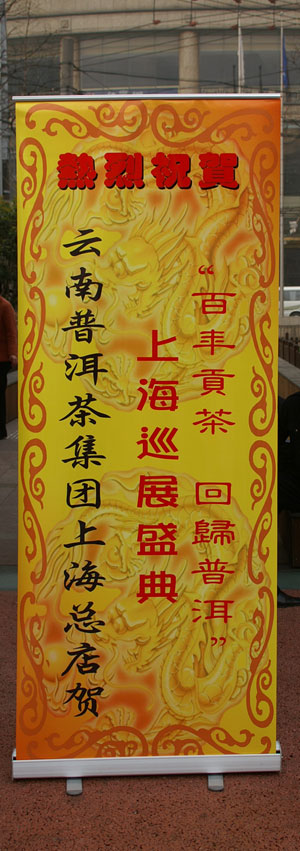 熱烈祝賀
“百年貢茶 回歸普洱”
上海巡展盛典
云南普洱茶集团上海总店贺